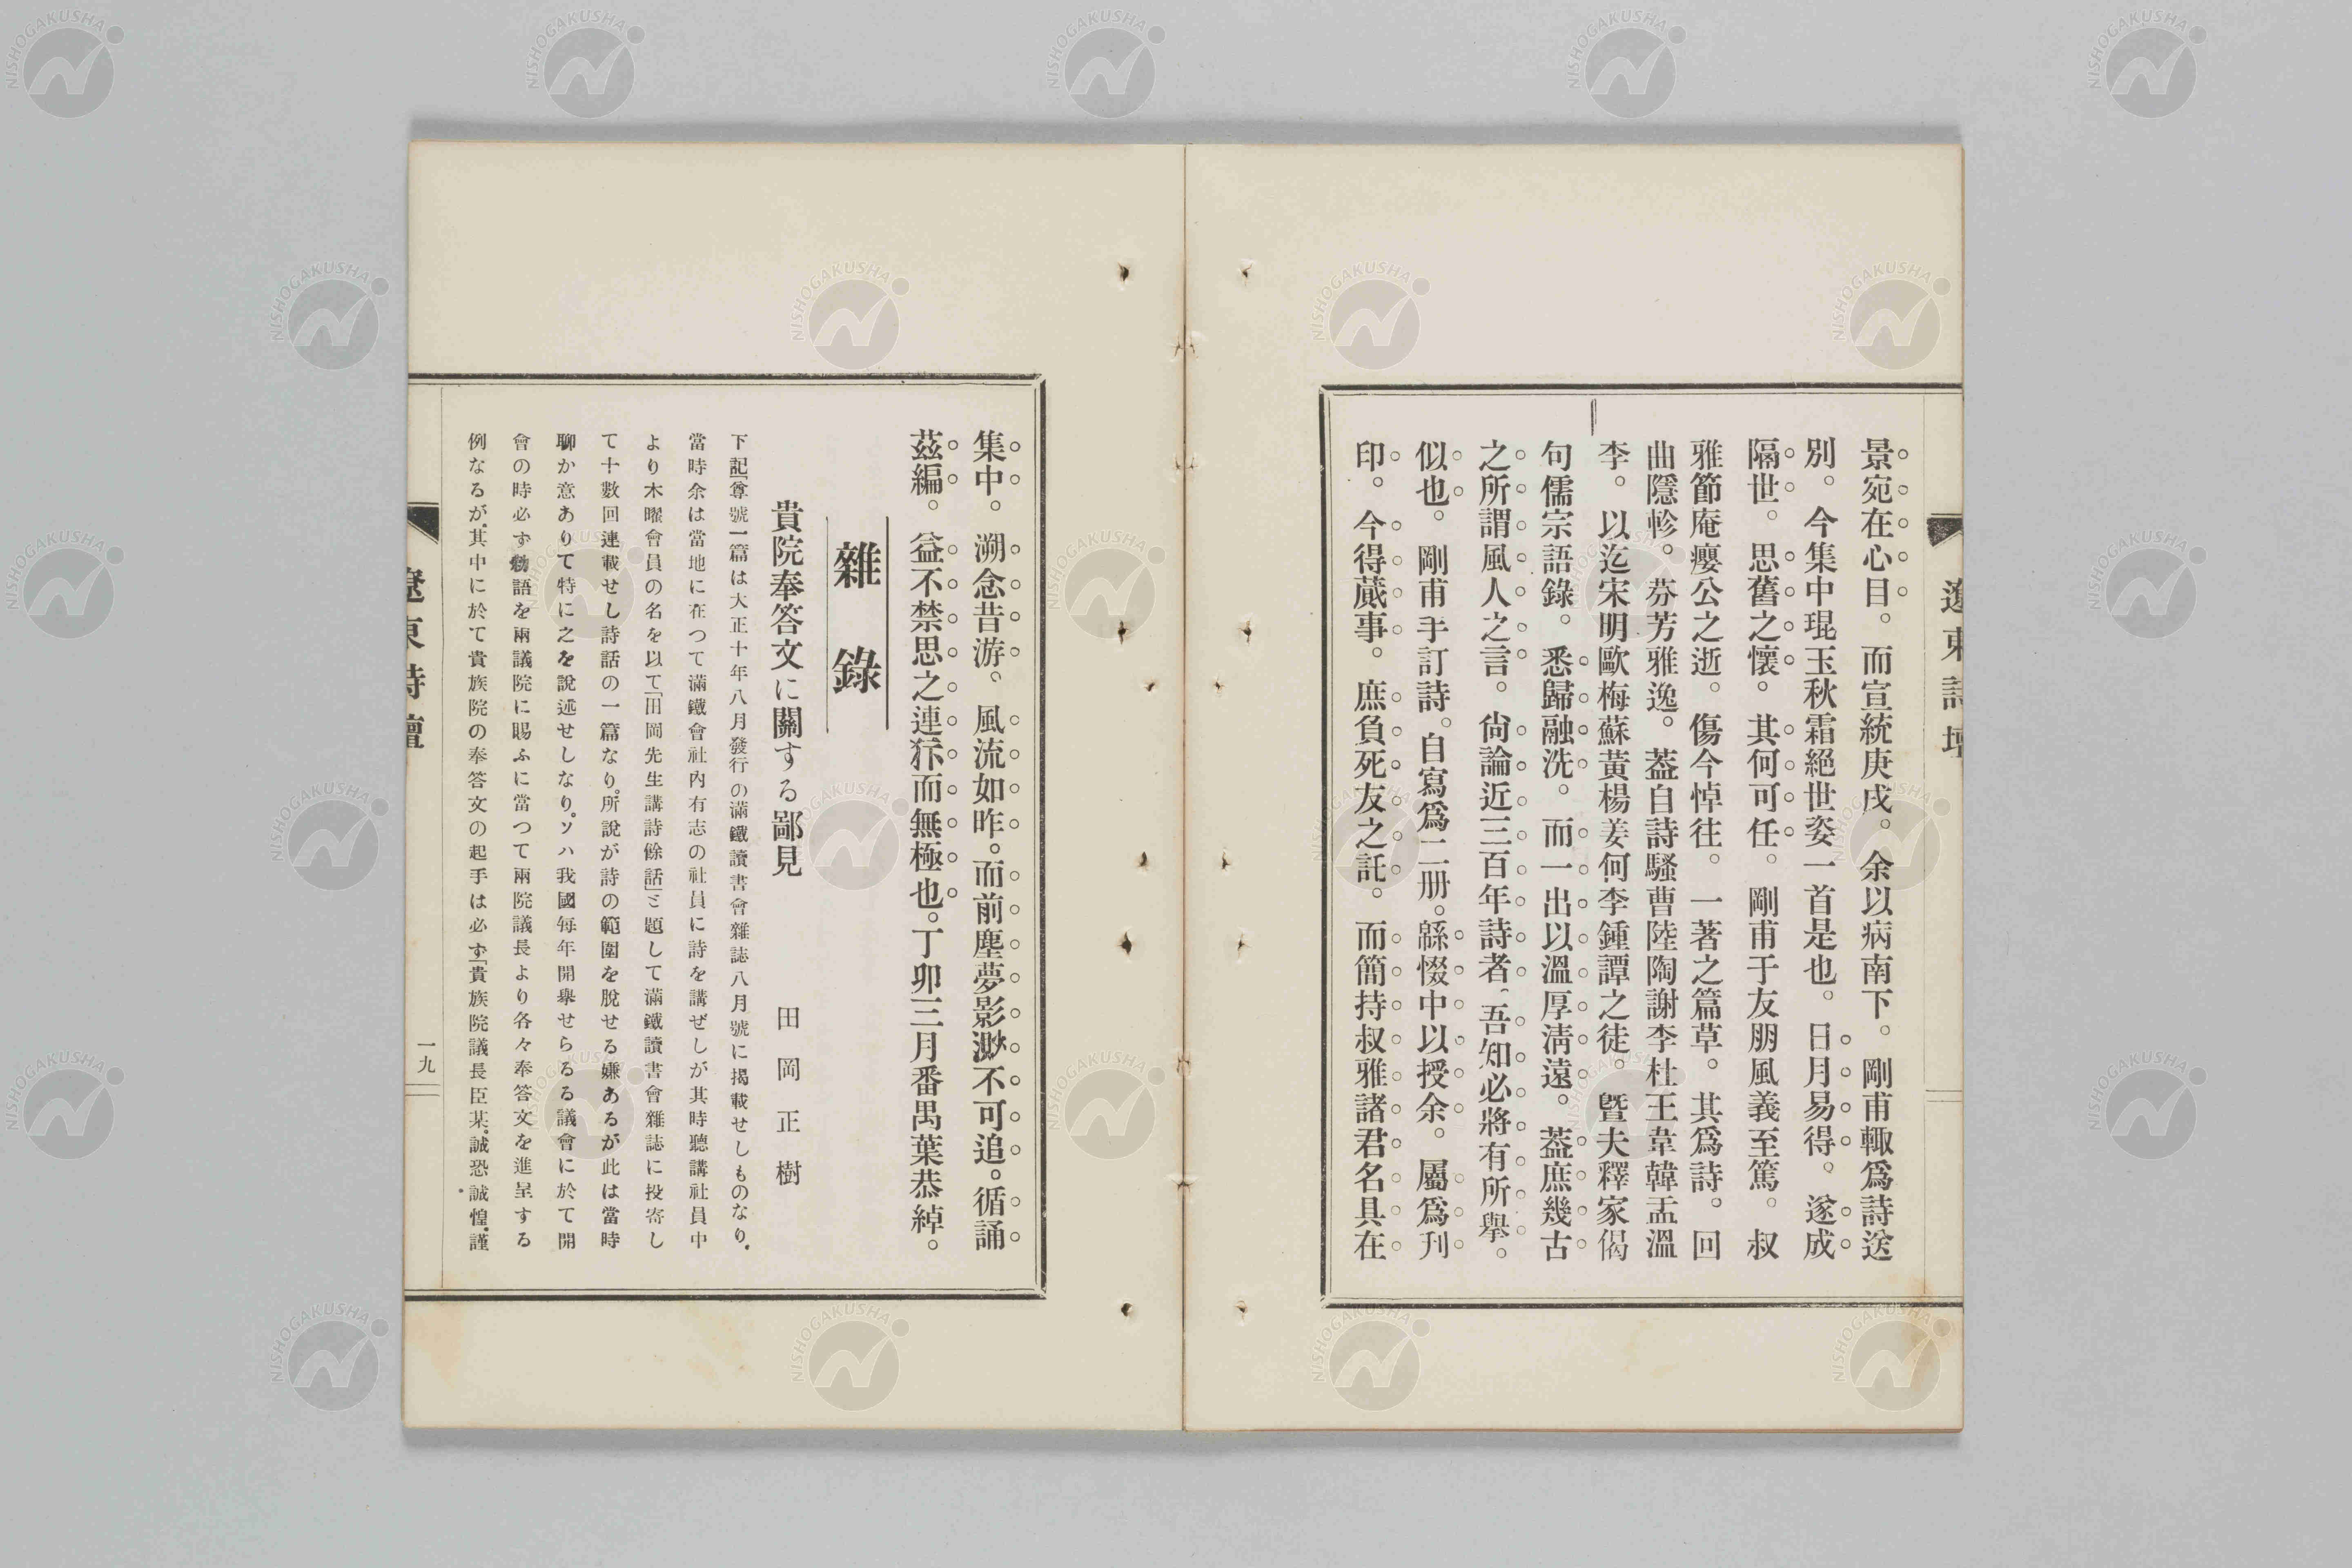 遼東詩壇
景宛在心目。而宣統庚戌。余以病南下。剛甫輙爲詩送
別。今集中琨玉秋霜絕世姿一首是也。日月易得。遂成
隔世。思舊之懷。其何可任。剛甫于友朋風義至篤。叔
雅節庵癭公之逝。傷今悼往。一著之篇草。其爲詩。回
曲隱軫。芬芳雅逸。葢自詩騷曹陸陶謝李杜王韋韓孟溫
李。以迄宋明歐梅蘇黃楊姜何李鍾譚之徒。曁夫釋家偈
句儒宗語錄。悉歸融洗。而一出以溫厚淸遠。葢庶幾古
之所謂風人之言。尙論近三百年詩者、吾知必將有所擧。
似也。剛甫手訂詩。自寫爲二册。緜惙中以授余。屬爲刋
印。今得蕆事。庶負死友之託。而簡持叔雅諸君名具在
集中。溯念昔游。風流如昨。而前塵夢影渺不可追。循誦
茲編。益不禁思之連犿而無極也。丁卯三月番禺葉恭綽。
雜錄
貴院奉答文に關する鄙見
田岡正樹
下記「尊號」一篇は大正十年八月發行の滿鐵讀書會雜誌八月號に揭載せしものなり。
當時余は當地に在つて滿鐵會社內有志の社員に詩を講ぜしが其時聽講社員中
より木曜會員の名を以て「田岡先生講詩餘話」と題して滿鐵讀書會雜誌に投寄し
て十數回連載せし詩話の一篇なり。所說が詩の範圍を脫せる嫌あるが此は當時
聊か意ありて特に之を說述せしなり。ソハ我國每年開擧せらるる議會に於て開
會の時必ず勅語を兩議院に賜ふに當つて兩院議長より各々奉答文を進呈する
例なるが、其中に於て貴族院の奉答文の起手は必ず「貴族院議長臣某、誠恐誠惶、謹
遼東詩壇
一九